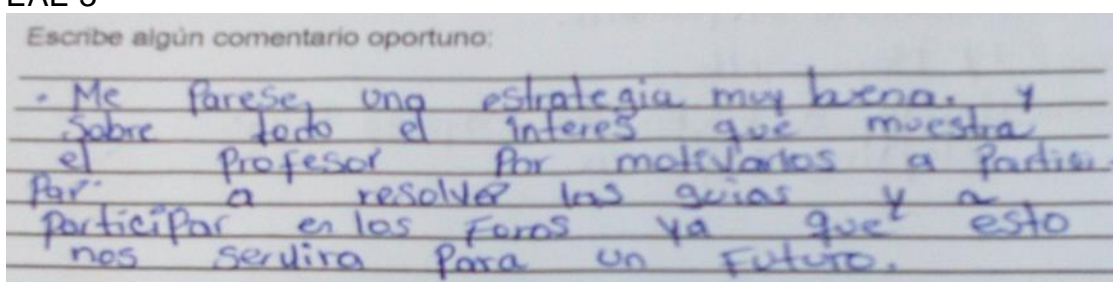 Escribe algún comentario oportuno:
· Me Parese, una estrategia muy buena. y
Sobre todo el interes que muestra
el Profesor Por motivarlos a Partici
Par. a resolver las guias y a
participar en los Foros ya que esto
nos servira Para un Futuro.